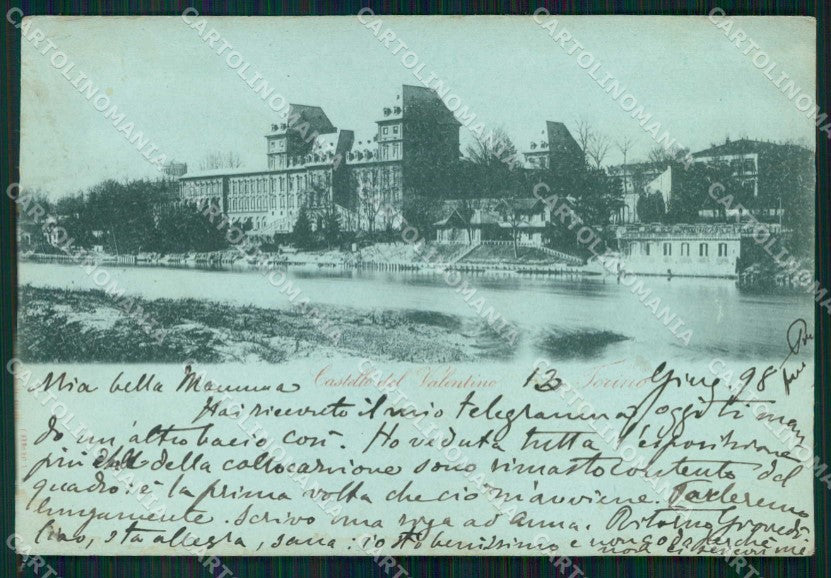 Castello del Valentino Torino
Mia bella Mamma 13 Giug. 98
Hai ricevuto il mio telegramma, oggi ti man
do un'altro bacio così. Ho veduta tutta l'esposizione
più che della collocazione sono rimasto contento del
quadro: è la prima volta che ciò m'avviene. Parleremo
lungamente. Scrivo una riga ad Anna. Ritorno
sta allegra, sana: io sto benissimo e non godo perchè
non ci
CARTOLINOMANIA